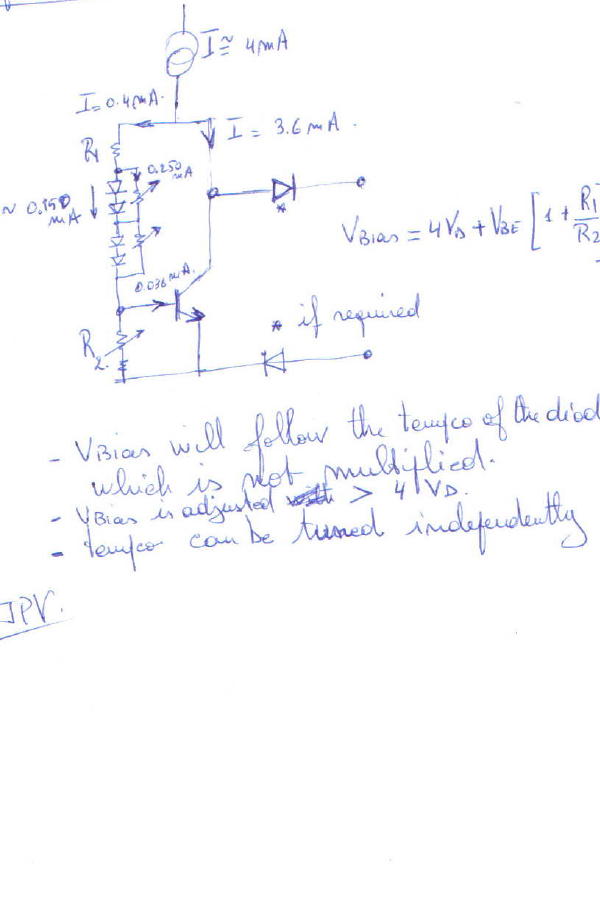 I ≅ 4mA
I = 0.4mA.
I = 3.6mA.
R1
0.250 mA
~ 0.150 mA
VBias = 4VD + VBE [ 1 + R1/R2
0.036mA.
* if required
*
R2.
- VBias will follow the tempco of the diod
which is not multiplied.
- VBias is adjusted > 4 VD.
- tempco can be tuned independently
JPV.